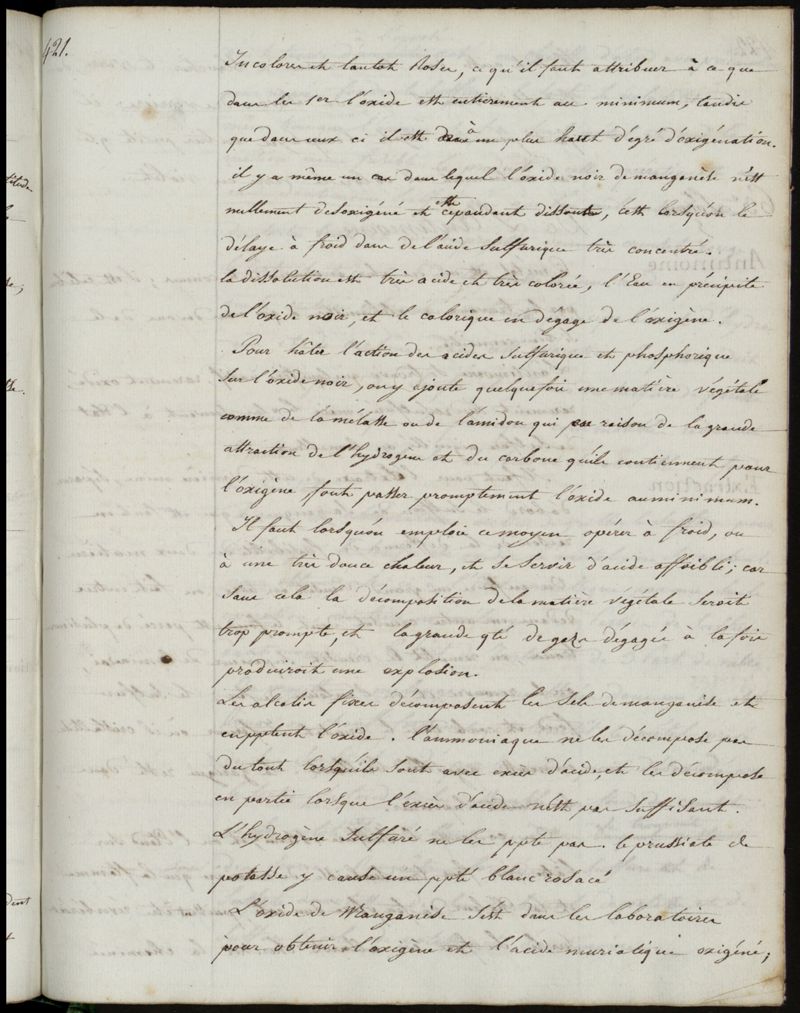 421.
Incolores et tantot Roses, ce qu'il faut attribuer à ce que
dans les 1er l'oxide est entierement au minimum, tandis
que dans ceux ci il est à un plus haut d'égré d'oxigénation.
il y a même un cas dans lequel l'oxide noir de manganèse n'est
nullement desoxigéné et est cependant dissout, c'est lorsqu'on le
délaye à froid dans de l'acide Sulfurique très concentré.
la dissolution est très acide et très colorée, l'Eau en précipite
de l'oxide noir, et le calorique en dégage de l'oxigène.
Pour hâter l'action des acides Sulfurique et phosphorique
Sur l'oxide noir, on y ajoute quelquefois une matière végétale
comme de la mélasse ou de l'amidon qui par raison de la grande
attraction de l'hydrogène et du carbone qu'ils contiennent pour
l'oxigène font passer promptement l'oxide au minimum.
Il faut lorsqu'on emploie ce moyen opérer à froid, ou
à une très douce chaleur, et se servir d'acide affoibli; car
sans cela la décomposition de la matiere végétale seroit
trop prompte, et la grande qté de gaz dégagée à la fois
produiroit une explosion.
Les alcalis fixes décomposent les Sels de manganèse et
en pptent l'oxide. l'ammoniaque ne les décompose pas
du tout lorsqu'ils sont avec excès d'acide, et les décompose
en partie lorsque l'excès d'acide n'est pas suffisant.
L'hydrogène Sulfuré ne les ppte pas. le prussiate de
potasse y cause un ppté blanc rosacé
L'oxide de Manganèse sert dans les laboratoires
pour obtenir l'oxigène et l'acide muriatique oxigéné;